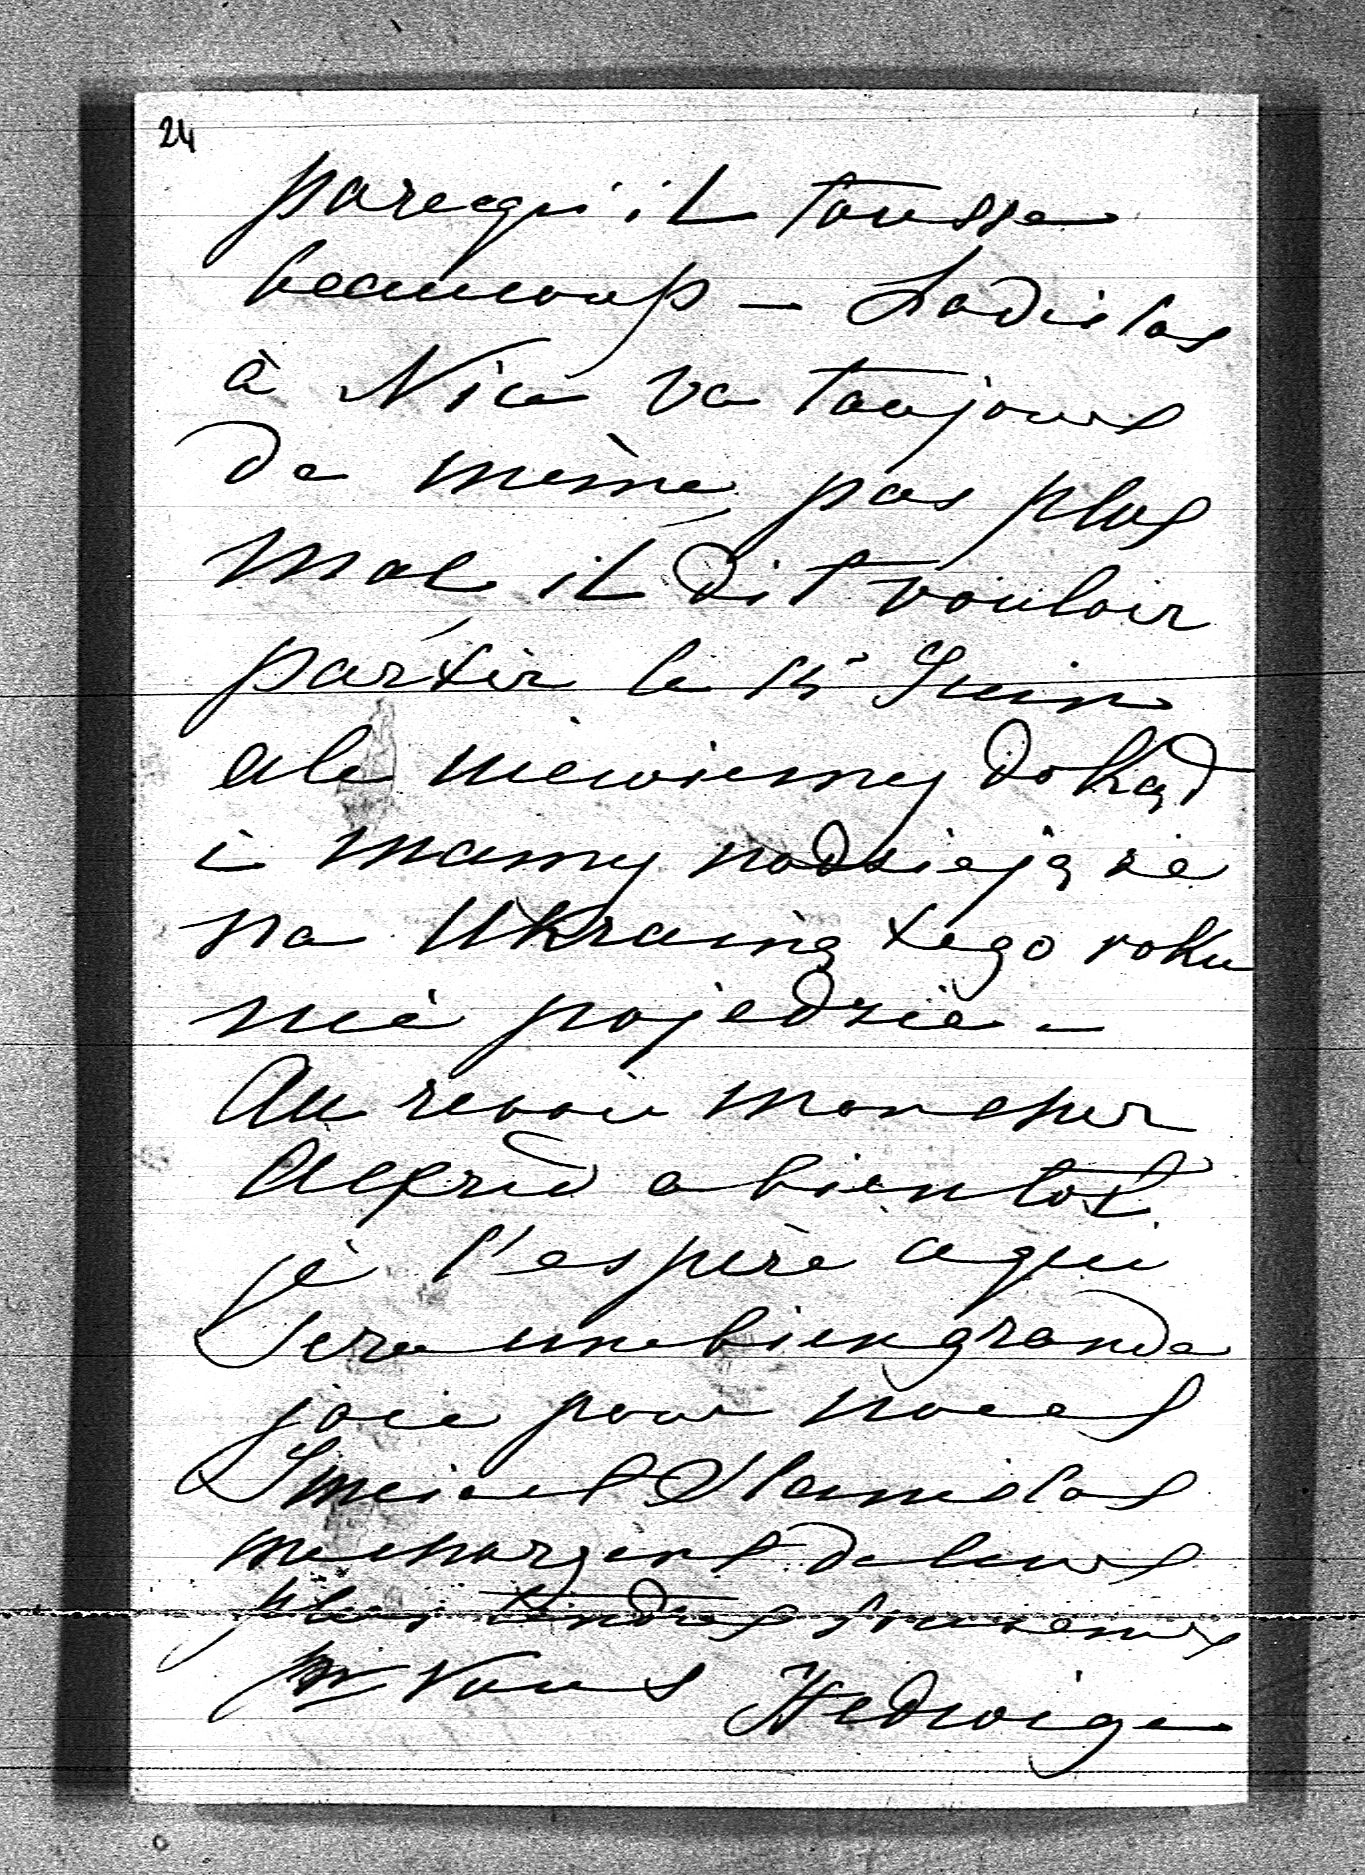 24
parcequ'il tousse
beaucoup – Ladislas
à Nice va toujours
de même, pas plus
mal, il dit vouloir
partir le 15 Juin
ale niewiemy dokąd
i mamy nadzieję że
na Ukrainę tego roku
nie pojedzie –
Au revoir mon cher
Alfred a bientot
je l'espère ce qui
sera une bien grande
joie pour nous
Stanislas
me chargent de leurs
plus tendres souvenirs
pr Vous Hedwige